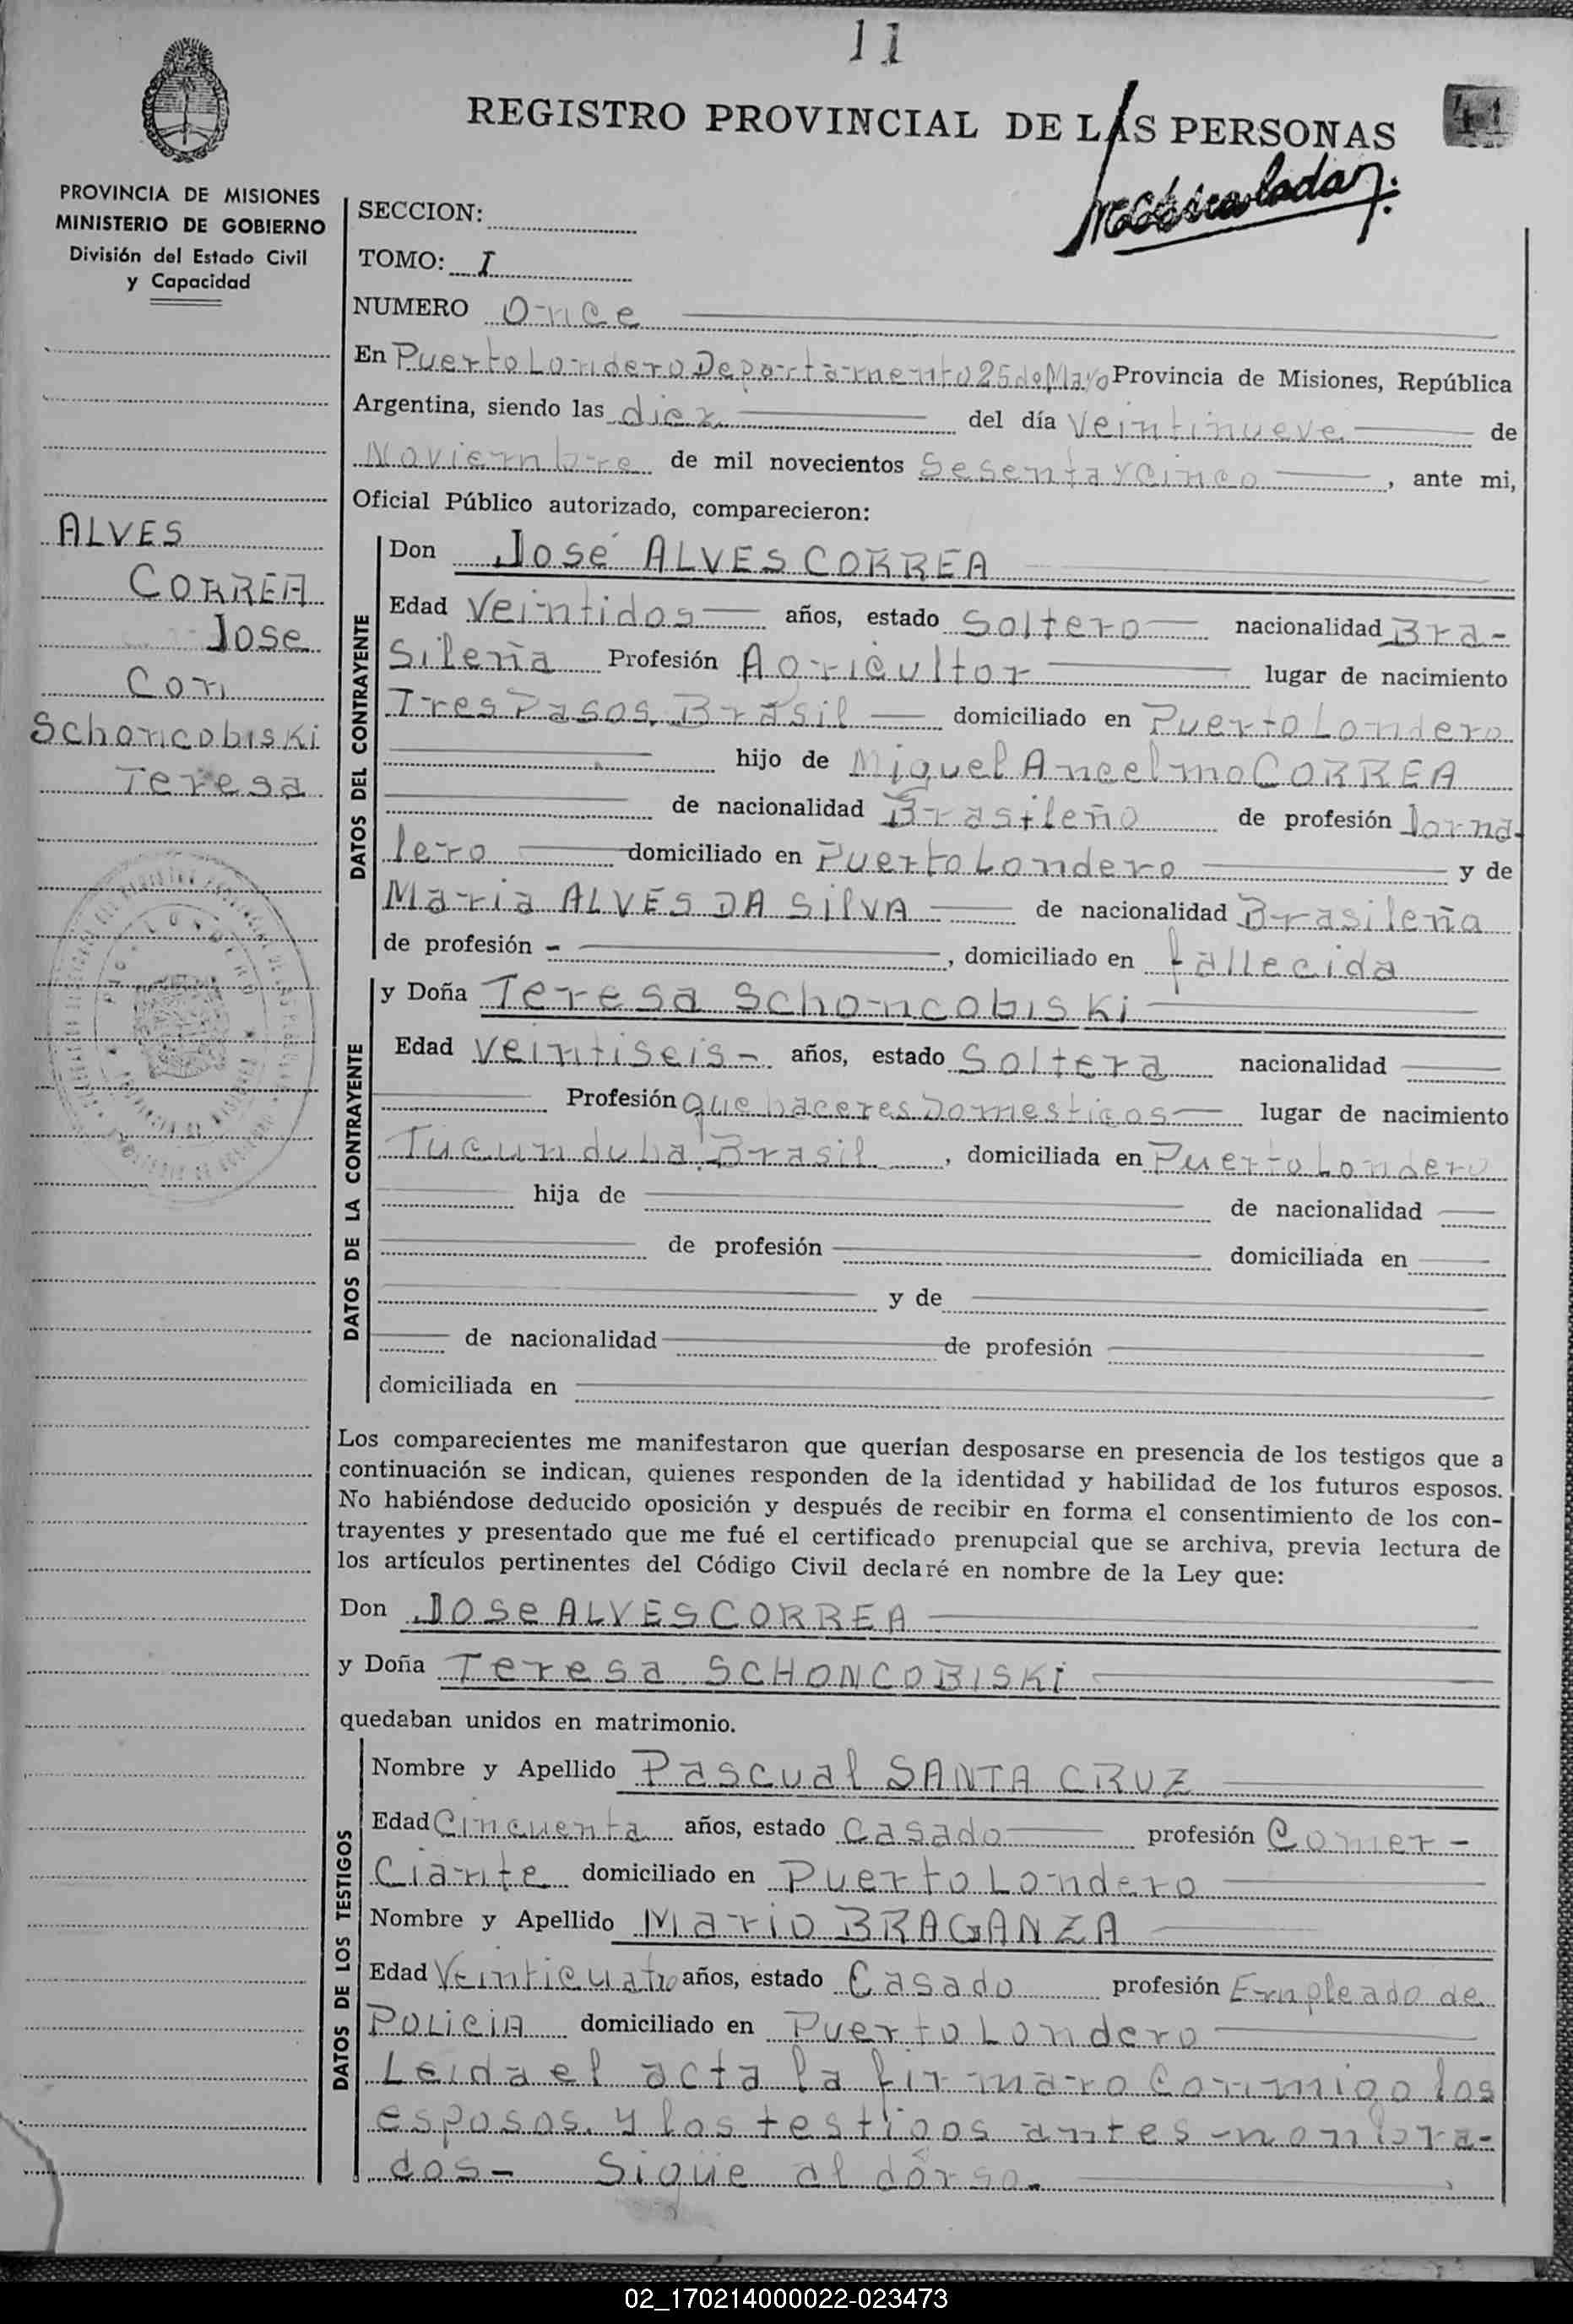 11
REGISTRO PROVINCIAL DE LAS PERSONAS
41
PROVINCIA DE MISIONES
MINISTERIO DE GOBIERNO
División del Estado Civil
y Capacidad
ALVES
CORREA
Jose
Con
Schoncobiski
Teresa
SECCION:
TOMO: I
NUMERO Once
En Puerto Londero Departamento 25 de Mayo Provincia de Misiones, República
Argentina, siendo las diez del día Veintinueve de
Noviembre de mil novecientos Sesenta y Cinco, ante mi,
Oficial Público autorizado, comparecieron:
DATOS DEL CONTRAYENTE
Don José ALVES CORREA
Edad Veintidos años, estado Soltero nacionalidad Bra-
Sileña Profesión Agricultor lugar de nacimiento
Tres Pasos, Brasil domiciliado en Puerto Londero
hijo de Miguel Ancelmo CORREA
de nacionalidad Brasileño de profesión Jorna-
lero domiciliado en Puerto Londero y de
Maria ALVES DA SilVA de nacionalidad Brasileña
de profesión -, domiciliado en fallecida
DATOS DE LA CONTRAYENTE
y Doña Teresa Schoncobiski
Edad Veintiseis - años, estado Soltera nacionalidad
Profesión Que haceres Domesticos lugar de nacimiento
Tucunduba Brasil, domiciliada en Puerto Londero
hija de de nacionalidad
de profesión domiciliada en
y de
de nacionalidad de profesión
domiciliada en
Los comparecientes me manifestaron que querían desposarse en presencia de los testigos que a
continuación se indican, quienes responden de la identidad y habilidad de los futuros esposos.
No habiéndose deducido oposición y después de recibir en forma el consentimiento de los con-
trayentes y presentado que me fué el certificado prenupcial que se archiva, previa lectura de
los artículos pertinentes del Código Civil declaré en nombre de la Ley que:
Don Jose ALVES CORREA
y Doña Teresa SCHONCOBISKi
quedaban unidos en matrimonio.
DATOS DE LOS TESTIGOS
Nombre y Apellido Pascual SANTA CRUZ
Edad Cincuenta años, estado Casado profesión Comer-
Ciante domiciliado en Puerto Londero
Nombre y Apellido Mario BRAGANZA
Edad Veinticuatro años, estado Casado profesión Empleado de
Policia domiciliado en Puerto Londero
Leida el acta la firmaro Conmigo los
esposos y los testigos antes nombra-
dos- Sigue al dorso.
02_170214000022-023473